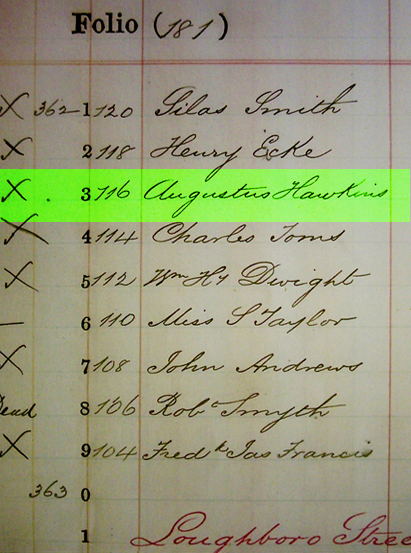 Folio (181)
X 362 1 120 Silas Smith
X 2 118 Henry Ecke
X . 3 116 Augustus Hawkins
X 4 114 Charles Toms
X 5 112 Wm Hy Dwight
— 6 110 Miss S Taylor
X 7 108 John Andrews
Dead 8 106 Robt Smyth
X 9 104 Fredk Jas Francis
363 0
1 Loughboro Stree